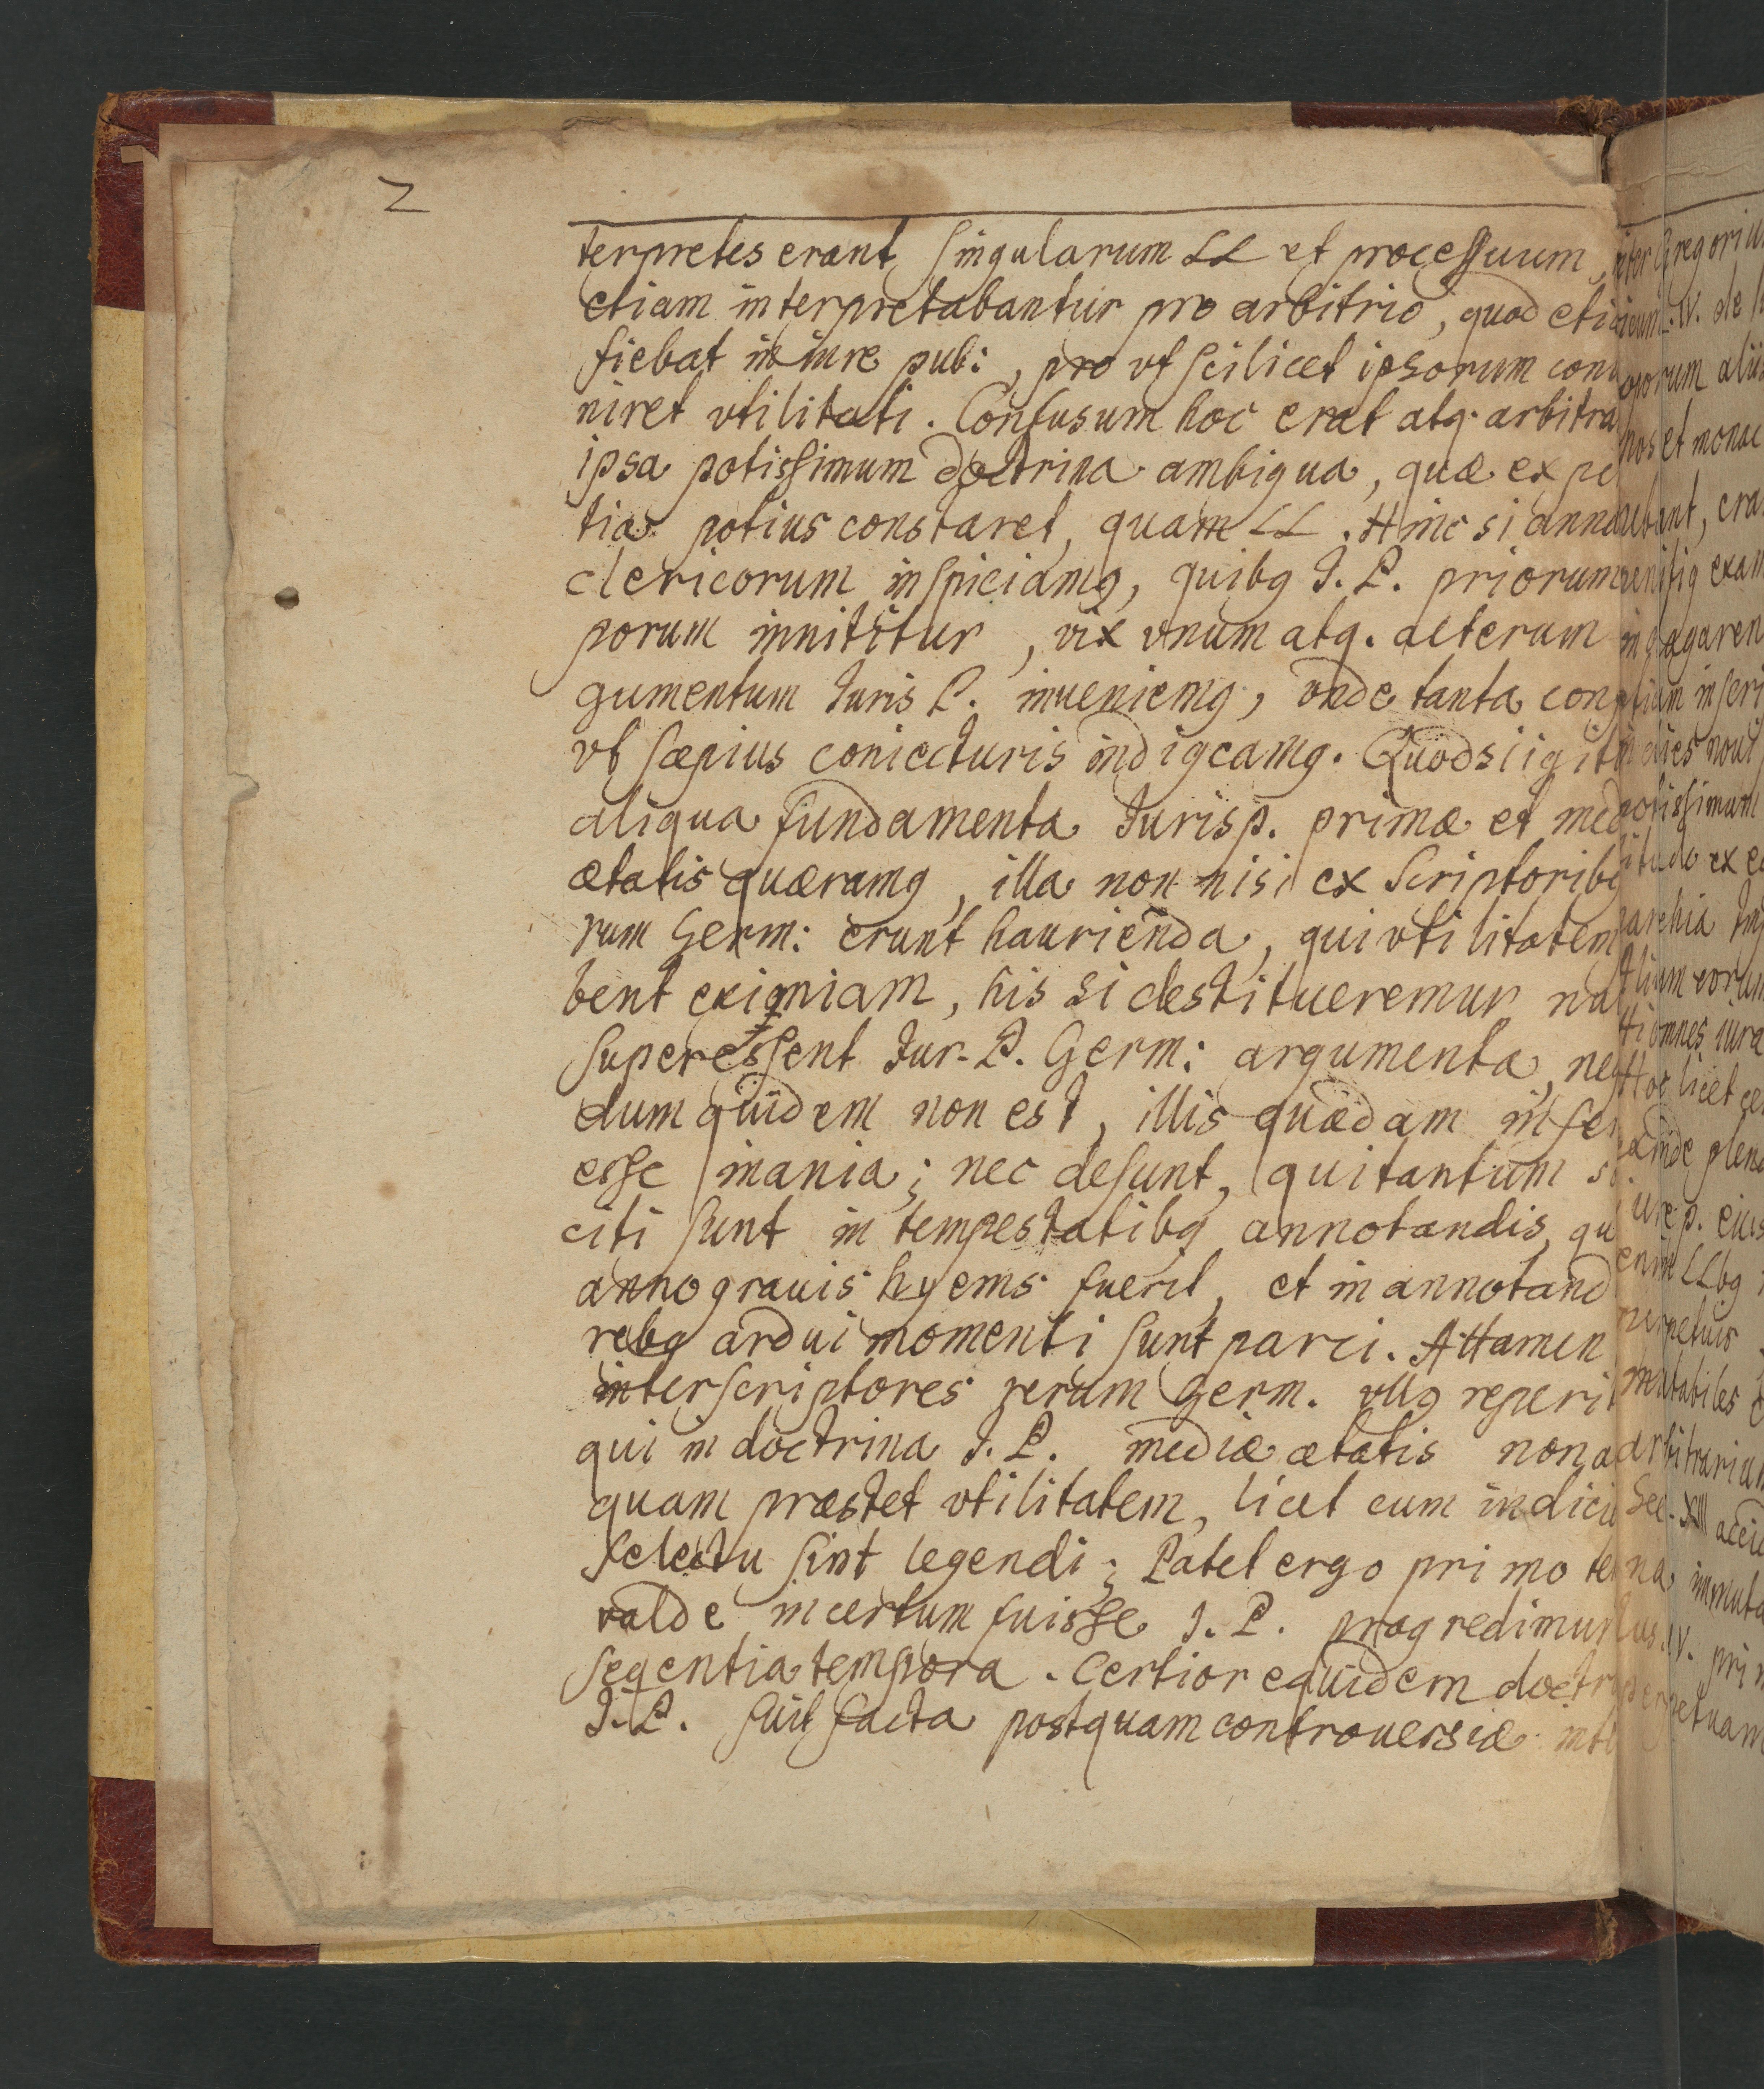 2
terpretes erant singularum LL et processuum,
etiam interpretabantur pro arbitrio, quod eti
fiebat in iure pub:, pro vt scilicet ipsorum con
niret vtilitati. Confusum hoc erat atq. arbitra
ipsa potissimum doctrina ambigua, quæ ex pe
tia potius constaret, quam LL. Hinc si anna
clericorum inspiciamq, quibq J. P. priorum
porum innititur, vix vnum atq. alterum
gumentum Juris P. inueniemq, vnde tanta con
vt sæpius coniecturis indigeamq. Quodsi igit
aliqua fundamenta Jurisp. primæ et med
ætatis quæramq, illa non nisi ex Scriptoribq
rum Germ: erunt haurienda, qui vtilitatem
bent eximiam, his si destitueremur na
superessent Jur. P. Germ: argumenta, ne
dum quidem non est, illis quædam inse
esse inania; nec desunt, qui tantum so
citi sunt in tempestatibq annotandis, qu
anno grauis hyems fuerit, et in annotand
rebq ardui momenti sunt parci. Attamen
inter scriptores rerum Germ. vllq reperi
qui in doctrina J. P. mediæ ætatis non a
quam præstet vtilitatem, licet cum indici
selectu sint legendi; Patet ergo primo te
valde incertum fuisse J. P. progredimur
seqentia tempora. Certior equidem doctr
J. P. fuit facta postquam controuersiæ int
inter Gregoriu
IV. de
orum aliis
hos et monac
ubant, era
exam
indagaren
etiam inseri
indies noui
potissimum
itudo ex e
archia Im
eorum
omnes iura
Hoc licet ce
deinde plene
iure p. eius
enim LLbq
perpetuis
mentabiles
arbitrariam
Sec. XIII acci
na immuta
IV. pri
perpetuam